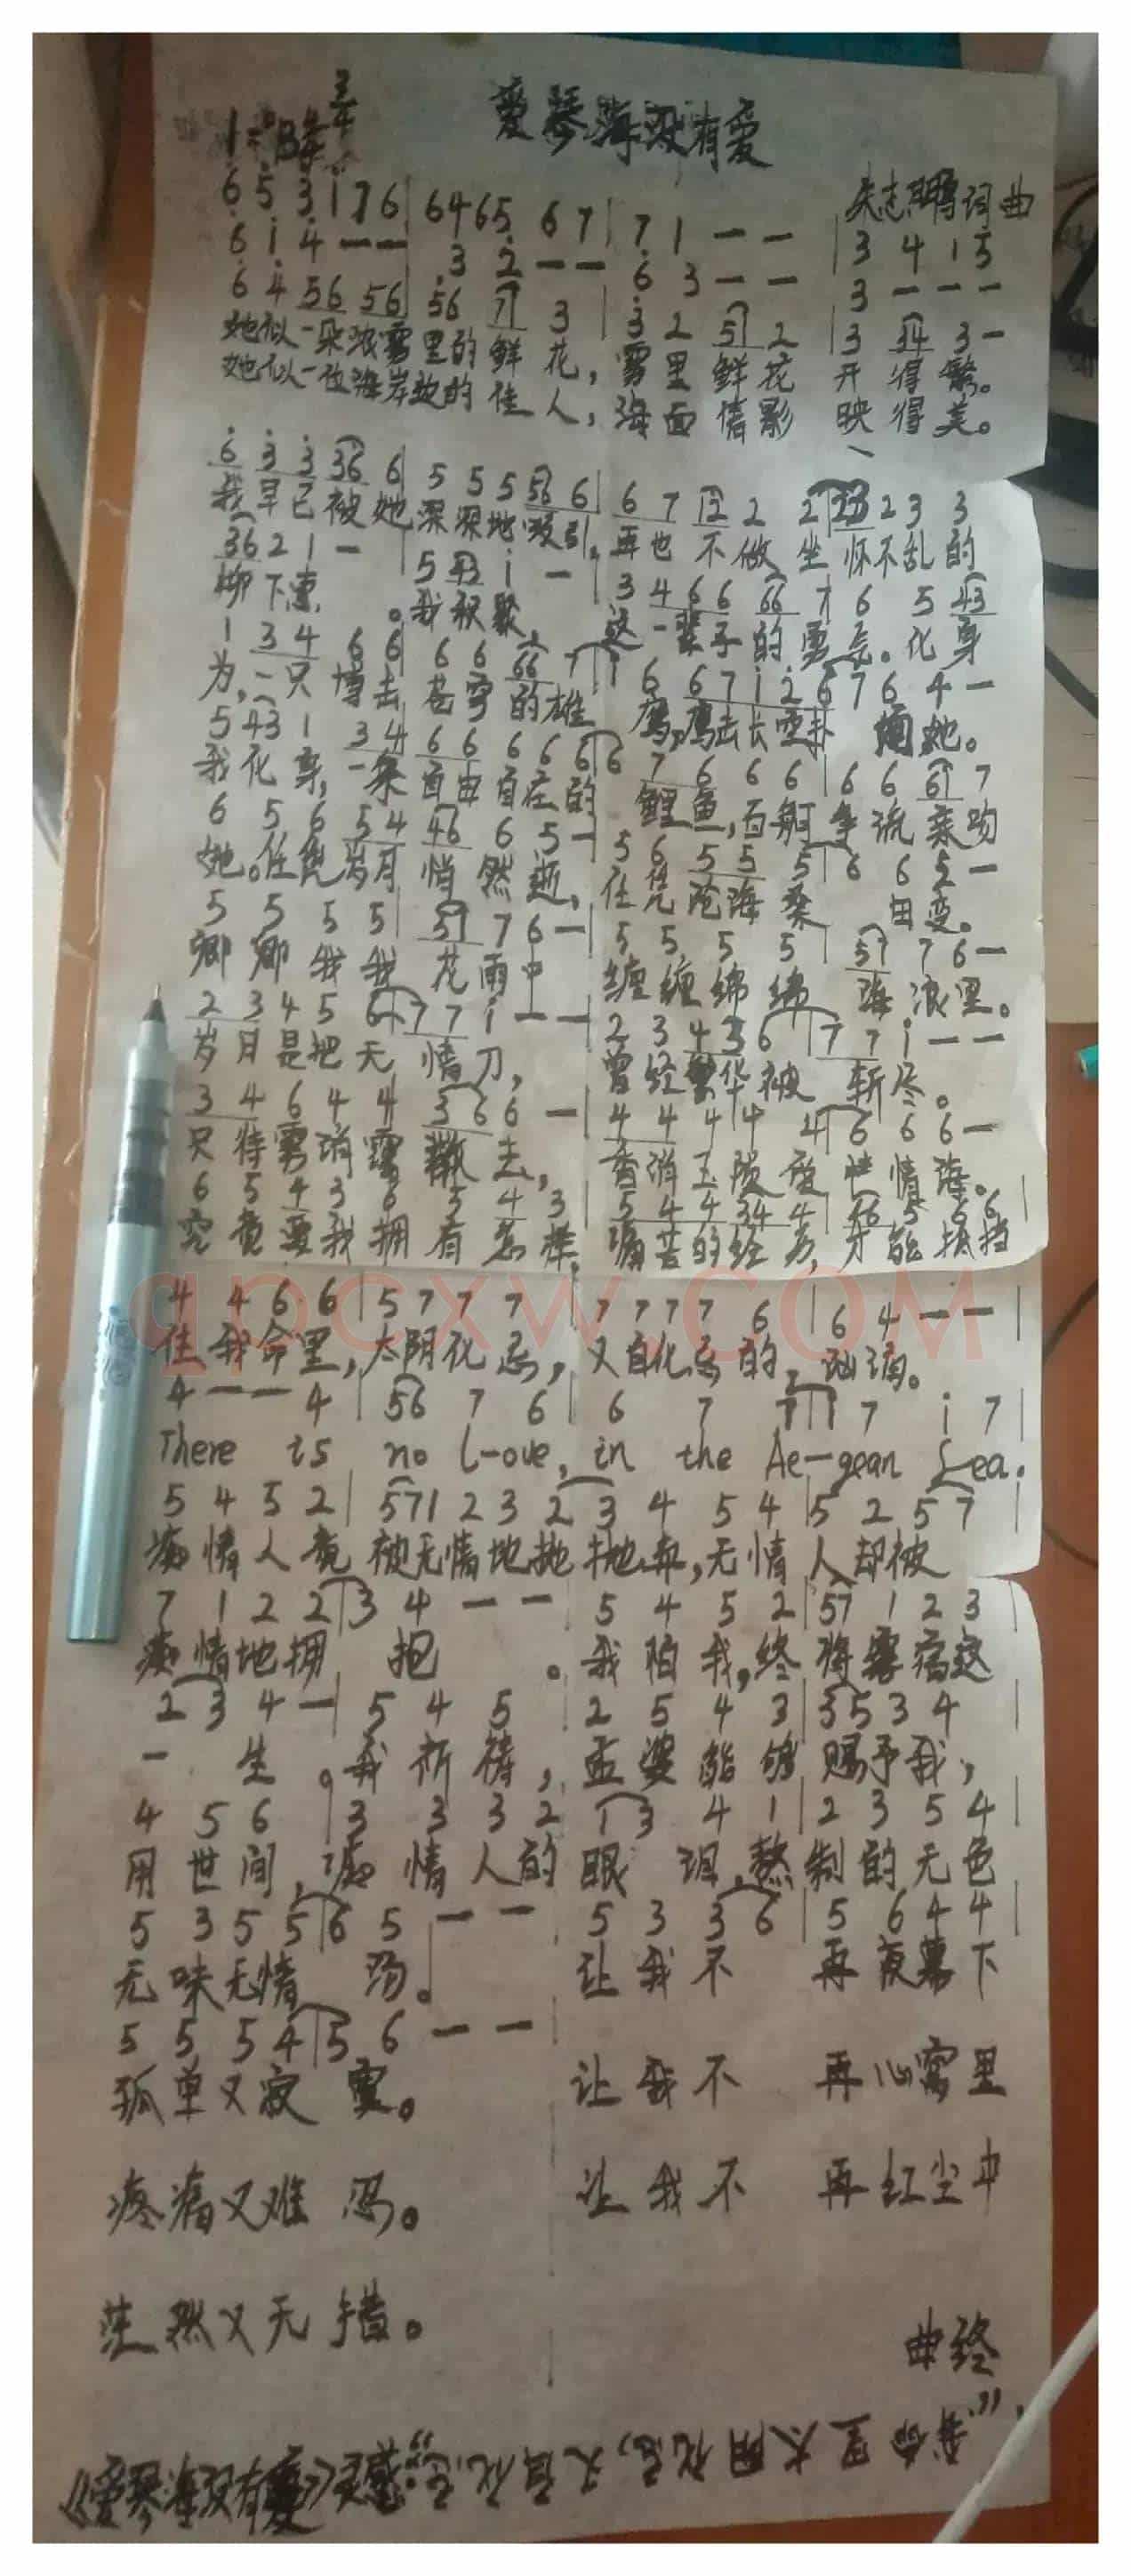 爱琴海没有爱
朱志鹏词曲
6 5 3 1 7 6 | 6 4 6 5 6 7 | 7 1 — — | 3 4 1 5
6 1 4 — — | 3 2 — — | 6 3 — — | 3 — — —
6 4 56 56 | 56 71 3 | 3 2 51 2 | 3 34 3 —
她似一朵浓雾里的鲜花，雾里鲜花开得繁。
她似一位海岸边的佳人，海面倩影映得美。
6 3 3 36 6 | 5 5 5 56 6 | 6 7 12 2 2 | 23 2 3 3
我早已被她深深地吸引，再也不做坐怀不乱的
36 2 1 — | 5 43 1 — | 3 4 6 6 66 7 6 5 43
柳下惠。我积聚，这一辈子的勇气。化身
1 3 4 6 6 | 6 6 66 7 | 1 6 6 7 1 2 6 | 7 6 4 —
为，一只搏击苍穹的雄鹰，鹰击长空 她。
5 43 1 3 4 | 6 6 6 6 6 | 6 7 6 6 6 | 6 6 61 7
我化身，一条自由自在的鲤鱼，百舸争流亲吻
6 5 6 5 4 | 46 6 5 — | 5 6 5 5 5 | 6 6 5 —
她。任凭岁月悄然逝，任凭沧海桑田变。
5 5 5 5 | 51 7 6 — | 5 5 5 5 | 51 7 6 —
卿卿我我花雨中 缠缠绵绵海浪里。
2 3 4 5 6 | 7 7 1 — — | 2 3 4 3 6 | 7 7 1 — —
岁月是把无情刀，曾经繁华被斩尽。
3 4 6 4 4 | 3 6 6 — | 4 4 4 4 4 | 6 6 6 —
只待雾消霭散去，香消玉陨爱情海。
6 5 4 3 6 | 5 4 3 | 5 4 4 34 4 | 66 5 6 6 |
究竟要我拥有怎样，痛苦的经历，才能抵挡
4 4 6 6 | 5 7 7 7 | 7 7 7 7 6 | 6 4 — — |
住我命里，太阴化忌，又自化忌的，汹涌。
4 — — 4 | 56 7 6 | 6 7 7 | 1 7 1 7 |
There is no L-ove, in the Ae-gean Sea.
5 4 5 2 | 571 2 3 2 | 3 4 5 4 | 5 2 5 7 |
痴情人竟被无情地抛抛弃，无情人却被
7 1 2 2 | 3 4 — — | 5 4 5 2 | 57 1 2 3 |
痴情地拥抱。我怕我，终将雾宿这
2 3 4 — | 5 4 5 | 2 5 4 3 | 35 3 4 |
一生。我祈祷，孟婆能够赐予我，
4 5 6 | 3 3 3 2 | 1 3 4 1 | 2 3 5 4 |
用世间，痴情人的眼泪，熬制的无色
5 3 5 5 | 6 5 — — | 5 3 3 6 | 5 6 4 4 |
无味无情汤。让我不再夜幕下
5 5 5 4 | 5 6 — — |
孤单又寂寞。让我不再心窝里
疼痛又难忍。让我不再红尘中
茫然又无措。
曲终
《爱琴海没有爱》 “我命里太阴化忌，又自化忌”